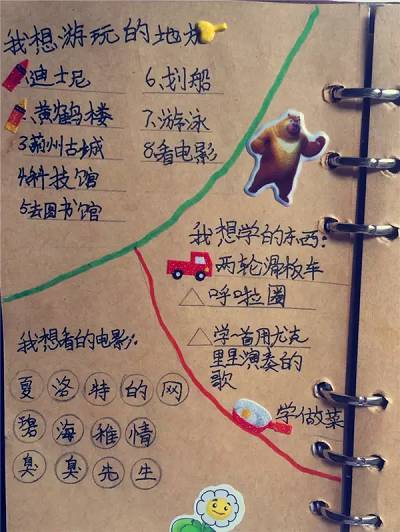 我想游玩的地方
迪士尼
黄鹤楼
3荆州古城
4科技馆
5去图书馆
6.划船
7.游泳
8.看电影
我想学的东西:
两轮滑板车
呼啦圈
学一首用尤克
里里演奏的
歌
学做菜
我想看的电影:
夏洛特的网
碧海稚情
臭臭先生